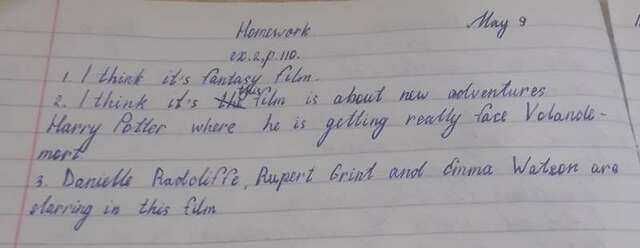 Homework
May 9
ex.2.p.110.
1. I think it's fantasy film.
2. I think it's this film is about new adventures
Harry Potter where he is getting really face Volande-
mort.
3. Danielle Radcliffe, Rupert Grint and Emma Watson are
starring in this film